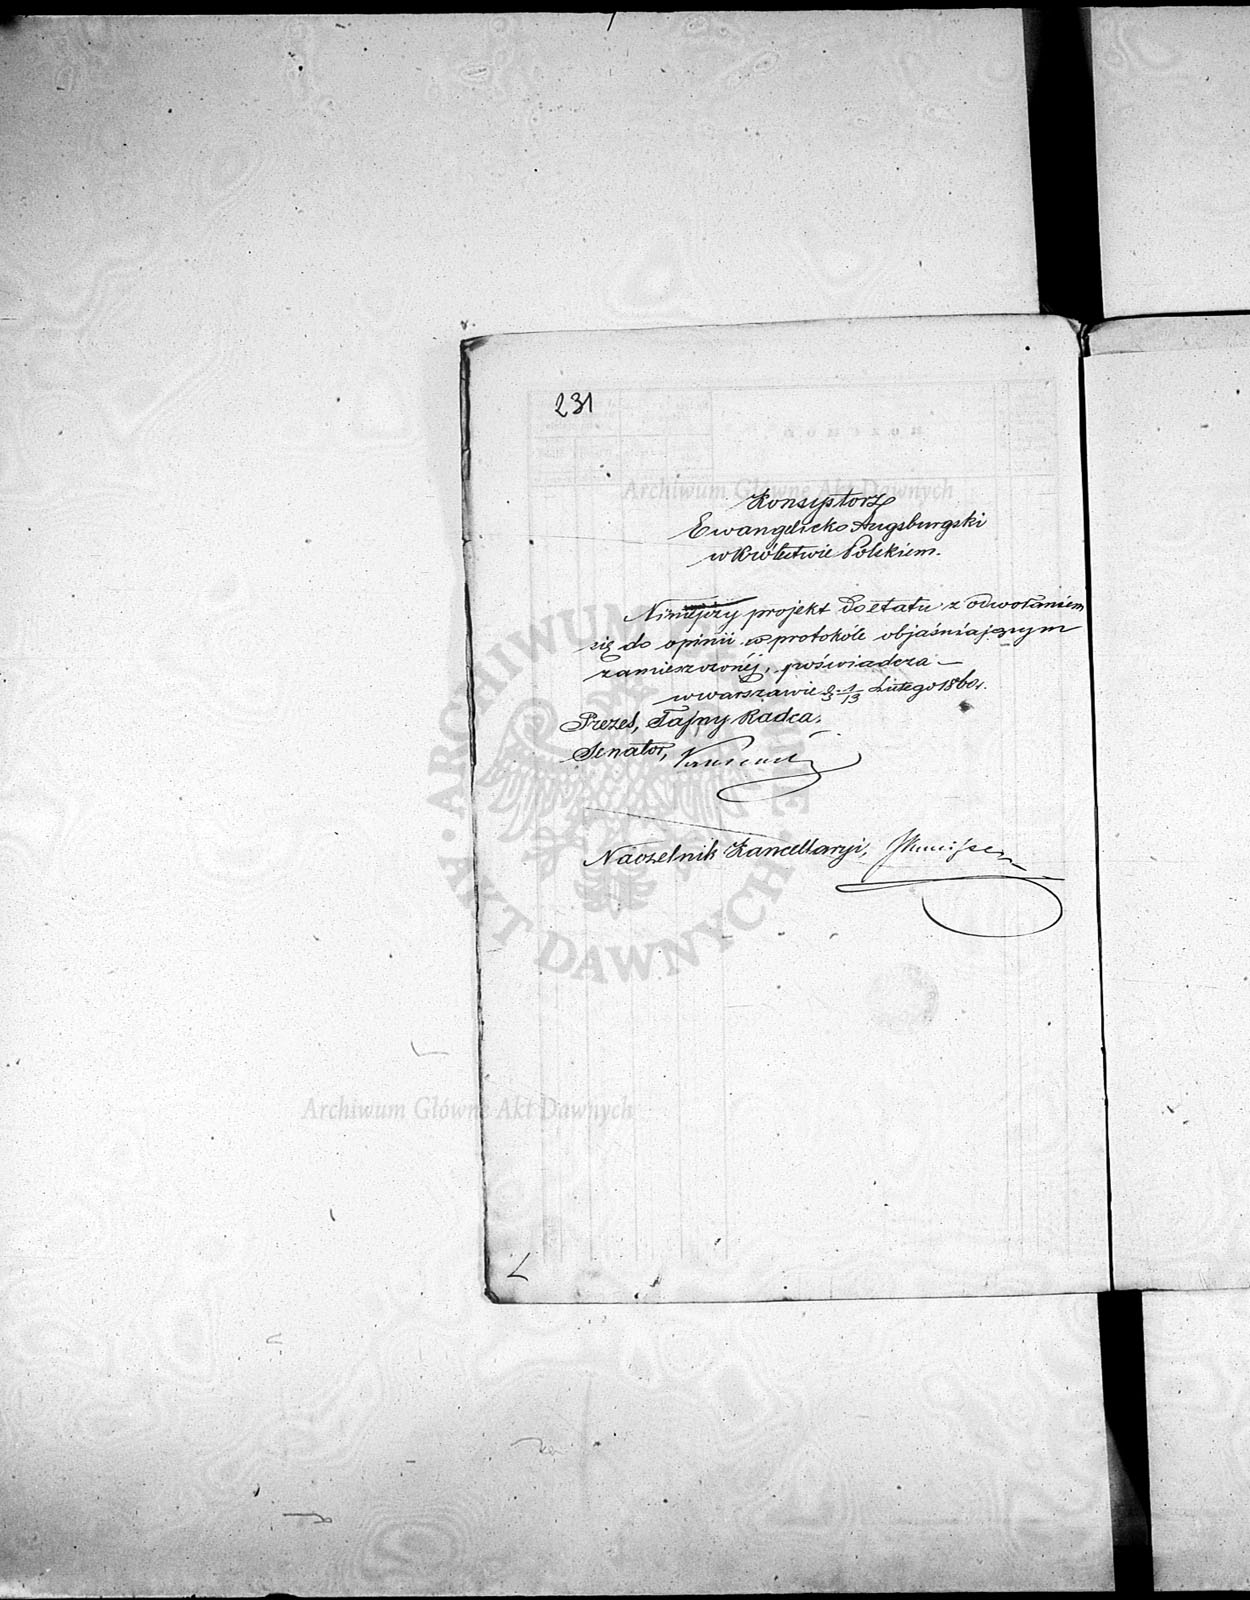 231
Archiwum Główne Akt Dawnych
Konsystorz
Ewangelicko Augsburgski
w Królestwie Polskiem.
Niniejszy projekt do etatu z odwołaniem
się do opinii w protokóle objaśniającym
zamieszczonéj, poświadcza —
w Warszawie 1/13 Lutego 1860 r.
Prezes, Tajny Radca,
Senator,
Naczelnik Kancellaryi,
ARCHIWUM GŁÓWNE AKT DAWNYCH
Archiwum Główne Akt Dawnych